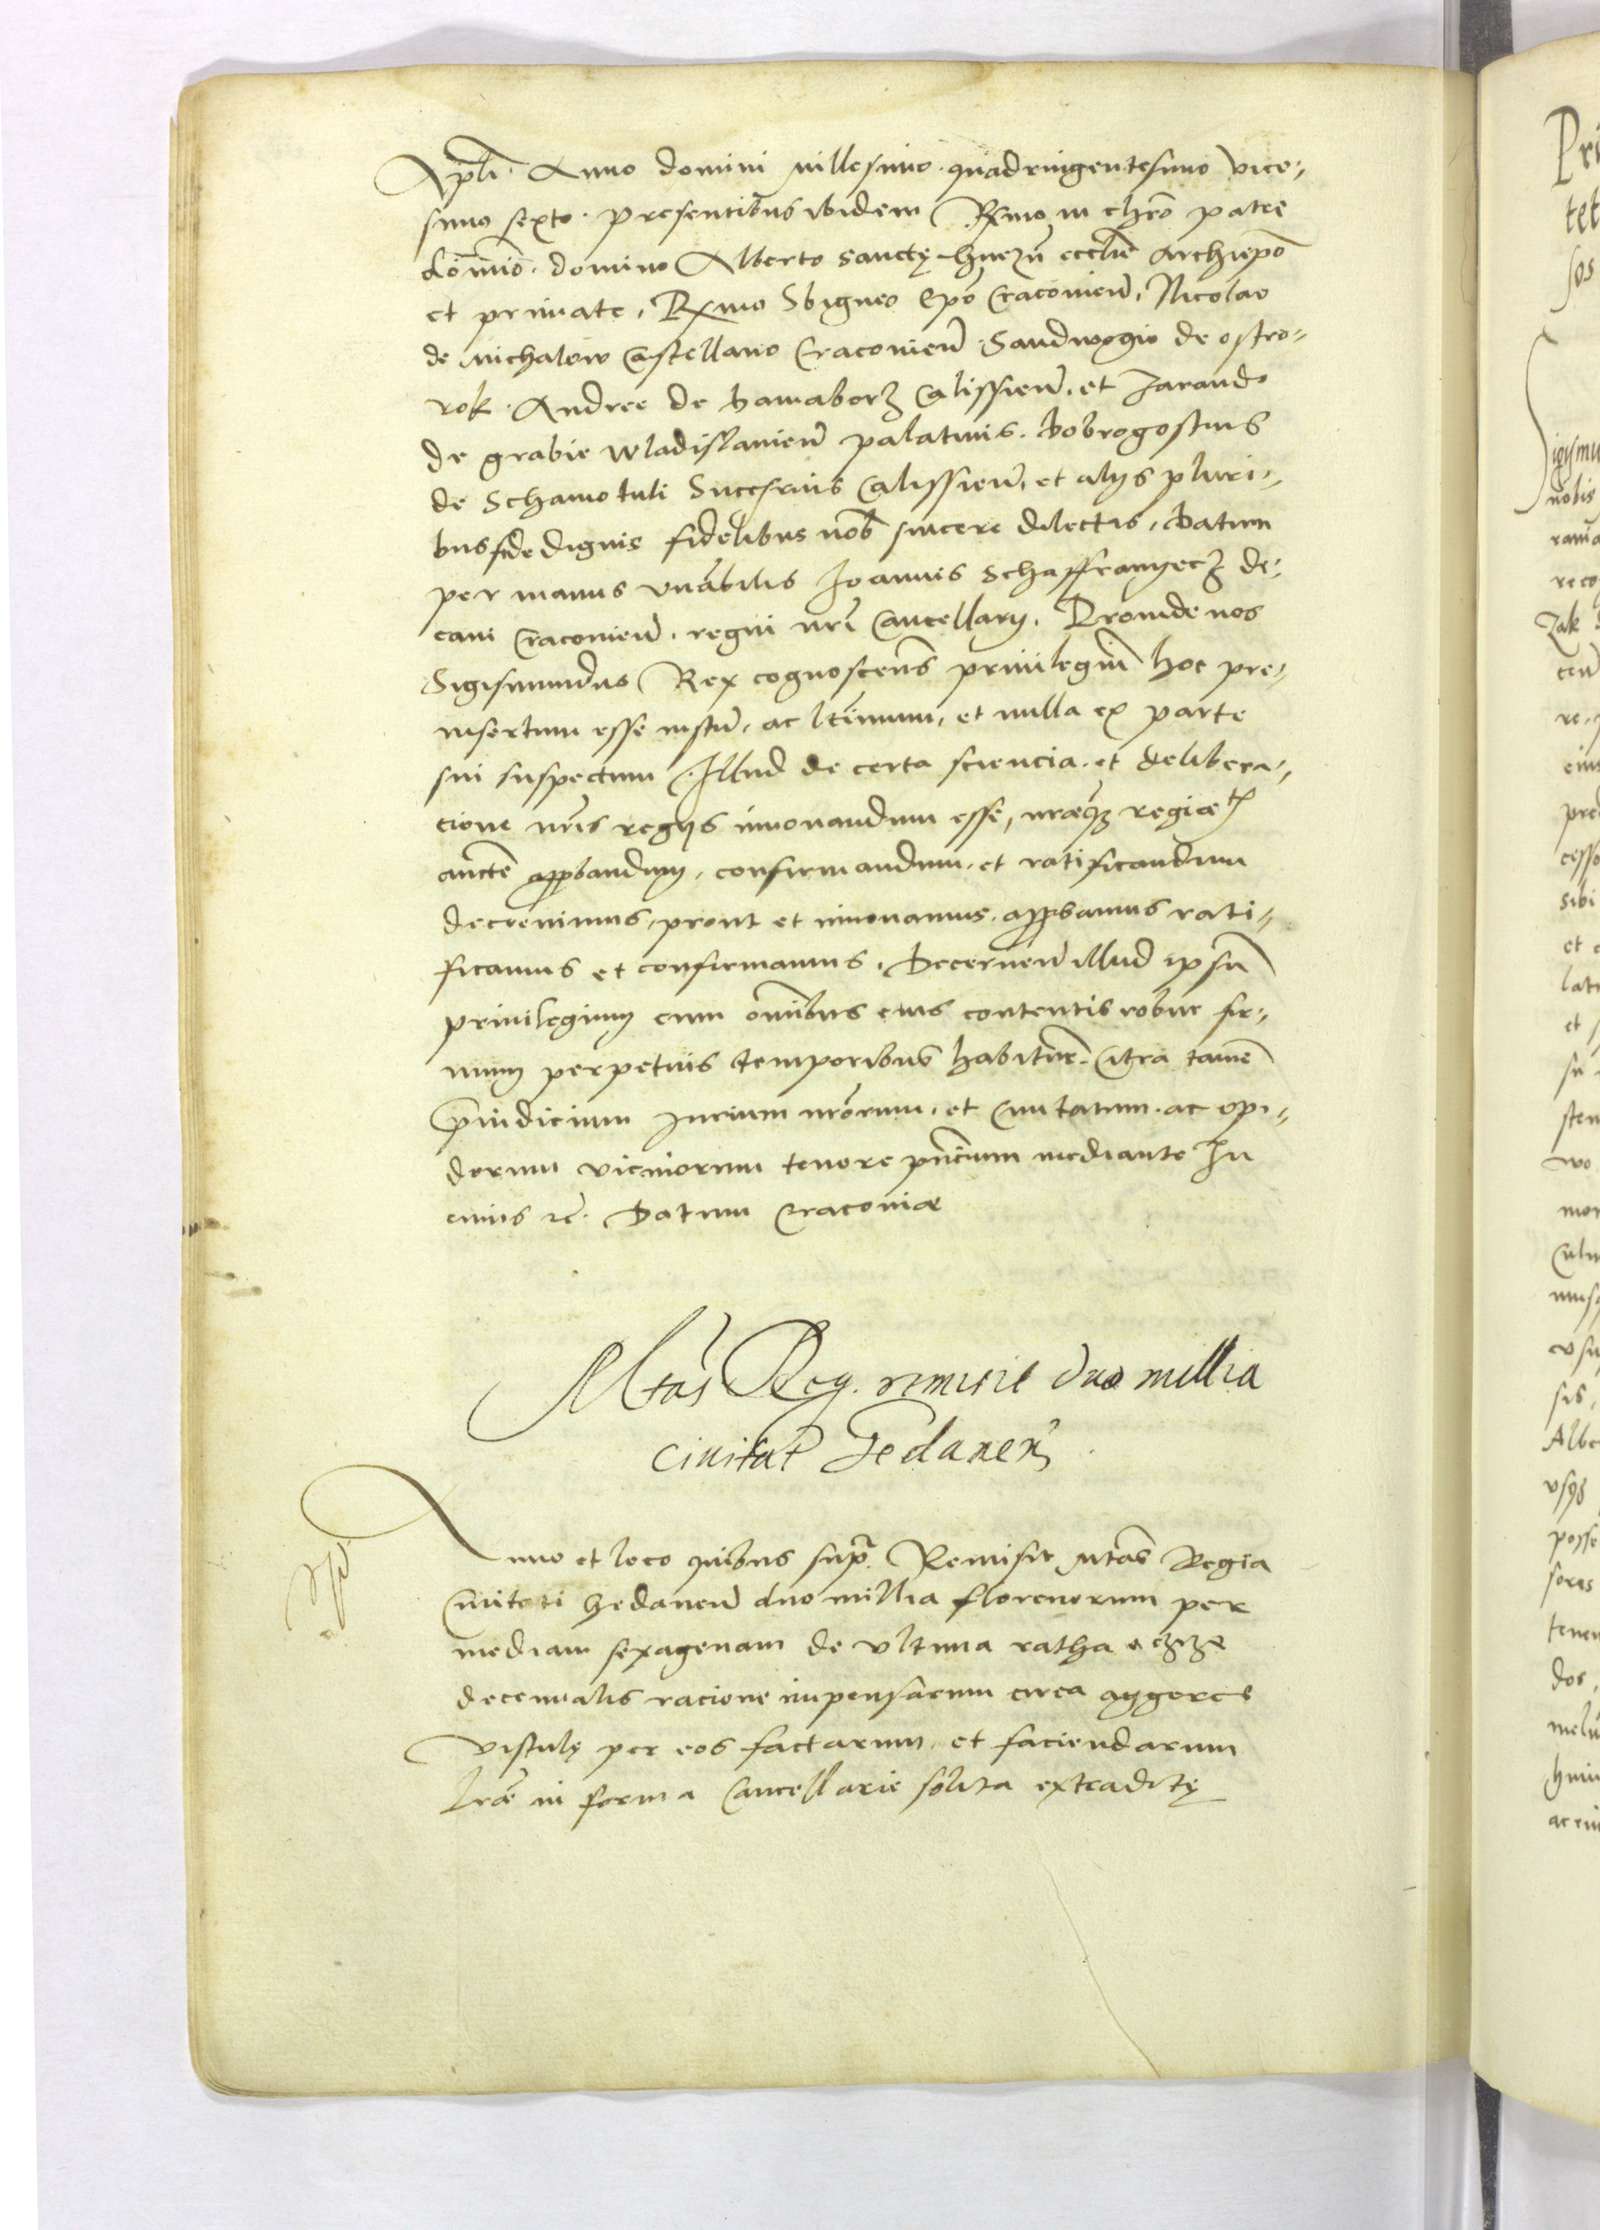 Apli. Anno domini millesimo quadringentesimo vice-
simo sexto. presentibus ibidem Rxmo in chro patre
domino. domino Alberto sanctę Gnezn̄ ecclie Archiepo
et primate, Rxmo Sbigneo Epo Cracovien̄, Nicolao
de michalow Castellano Cracovien̄ Sandwogio de ostro-
rok. Andree de Damaborz Calissien̄. et Jarando
de grabie wladislavien̄ palatinis. Dobrogostius
de Schamotuli Succsrius Calissien̄, et alijs pluri-
bus fide dignis fidelibus nob sincere dilectis, Datum
per manus vnabilis Joannis Schaffranyecz de-
cani Cracovien̄. regni nri Cancellarij. Proinde nos
Sigismundus Rex cognoscens privilegiū hoc pre-
insertum esse iustū, ac ltimum, et nulla ex parte
sui suspectum. Illud de certa sciencia et delibera-
cione nris regijs innovandum esse, nraeqz regiae
aucte approbandum, confirmandum, et ratificandum
decrevimus, prout et innovamus. approbamus rati-
ficamus et confirmamus, Decernen̄ illud ipsū
privilegium cum omibus eius contentis robur fir-
mum perpetuis temporibus habiturū. Citra tamē
preiudicium Jurium nrorum, et Civitatum. ac opi-
dorum vicinorum tenore pncium mediante In
cuius rē. Datum Cracoviae
Mtas Reg. remisit duo millia
civitat Gedanen̄
Anno et loco quibus supra. Remisit Mtas Regia
Civitati Gedanen̄ duo millia florenorum per
mediam sexagenam de vltima ratha
decennalis racione impensarum circa aggeres
Vistulę per eos factarum, et faciendarum
Lrae in forma Cancellarie solita extraditę